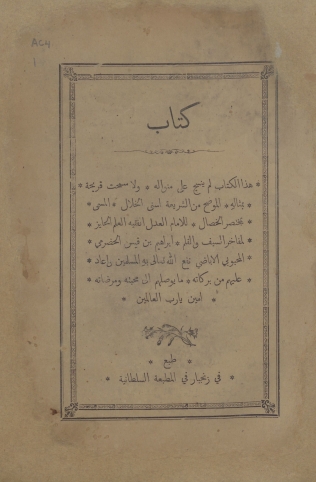 AC4
1
كتاب
* هذا الكتاب لم ينسج على منواله * ولا سمحت قريحة *
* بمثاله * الموضح من الشريعة اسنى الخلال * المسمى *
* بمختصر الخصال * للامام العدل الفقيه العلم الحايز *
* لمفاخر السيف والقلم * ابراهيم بن قيس الحضرمي *
* الاباضي نفع الله تعالى به المسلمين واعاد *
* عليهم من بركاته * ما يوصلهم الى محبته ومرضاته *
* امين يارب العالمين *
* طبع *
* في زنجبار في المطبعة السلطانية *